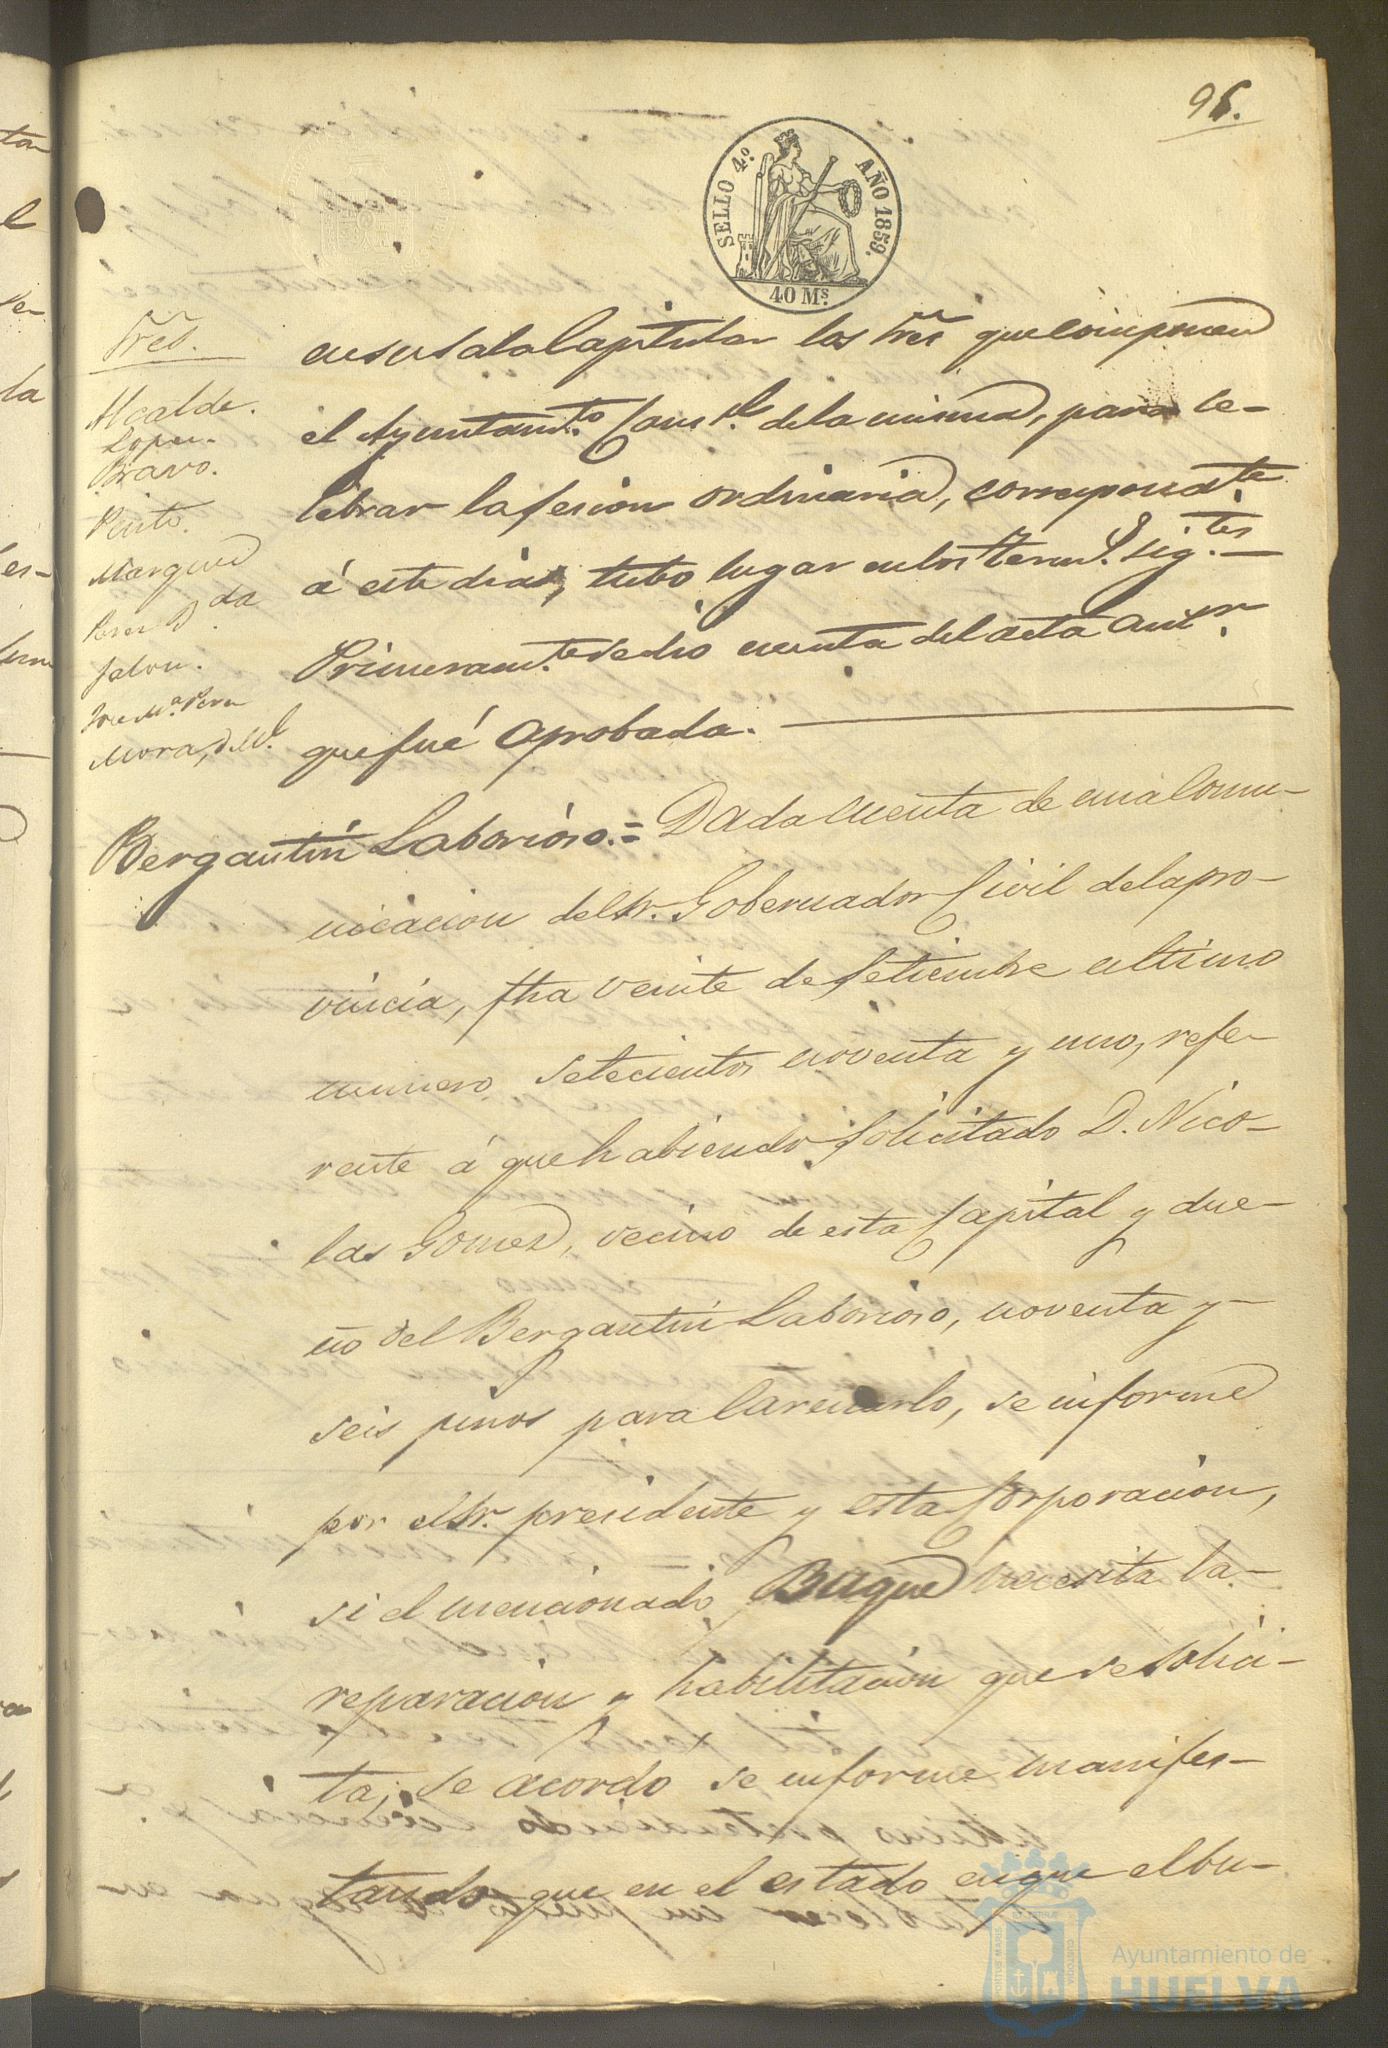 96.
SELLO 4.º AÑO 1859.
40 Ms.
Sres.
Alcalde.
Lopez.
Bravo.
Pinto.
Marquez
Perez D
da
Jalon.
Jose M.ª Perez
Mora, D. Ml.
en su sala Capitular los Sres que componen
el Ayuntam.to Cons.l de la misma, para ce-
lebrar la sesion ordinaria, correspond.te
á este dia, tubo lugar en los term.s sig.tes
Primeram.te se dio cuenta del acta ant.r
que fué aprobada.
Bergantin Laborioso.= Dada cuenta de una Comu-
nicacion del Sr. Gobernador Civil de la pro-
vincia, fha veinte de Setiembre ultimo
numero setecientos noventa y uno, refe-
rente á que habiendo solicitado D. Nico-
las Gomez, vecino de esta Capital y due-
ño del Bergantin Laborioso, noventa y
seis pinos para carenarlo, se informe
por el Sr. presidente y esta Corporacion,
si el mencionado Buque necesita la
reparacion y habilitacion que se solici-
ta; se acordo se informe manifes-
tando que en el estado en que el bu-
Ayuntamiento de
HUELVA